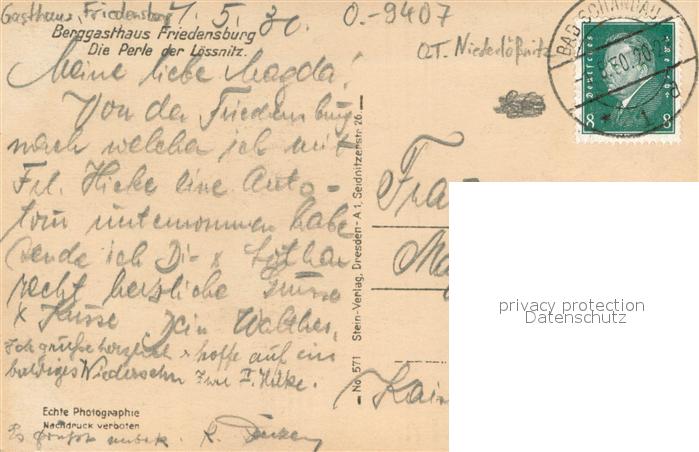 Gasthaus, Friedensburg 7. 5. 30. O.-9407
Berggasthaus Friedensburg
Die Perle der Lössnitz.
OT. Niederlößnitz
BAD SCHANDAU
Deutsches Reich
8 8
Meine liebe Magda!
Von der Friedensburg
nach welcher ich mit
Frl. Hicke eine Auto-
tour unternommen habe
sende ich Dir x Lothar
recht herzliche Grüsse
x Küsse Dein Walther.
Ich grüße herzlich x hoffe auf ein
baldiges Wiedersehn
Es grüßt unbek. K.
Echte Photographie
Nachdruck verboten
No. 571 Stein-Verlag, Dresden-A 1, Seidnitzerstr. 26
Frau
privacy protection
Datenschutz